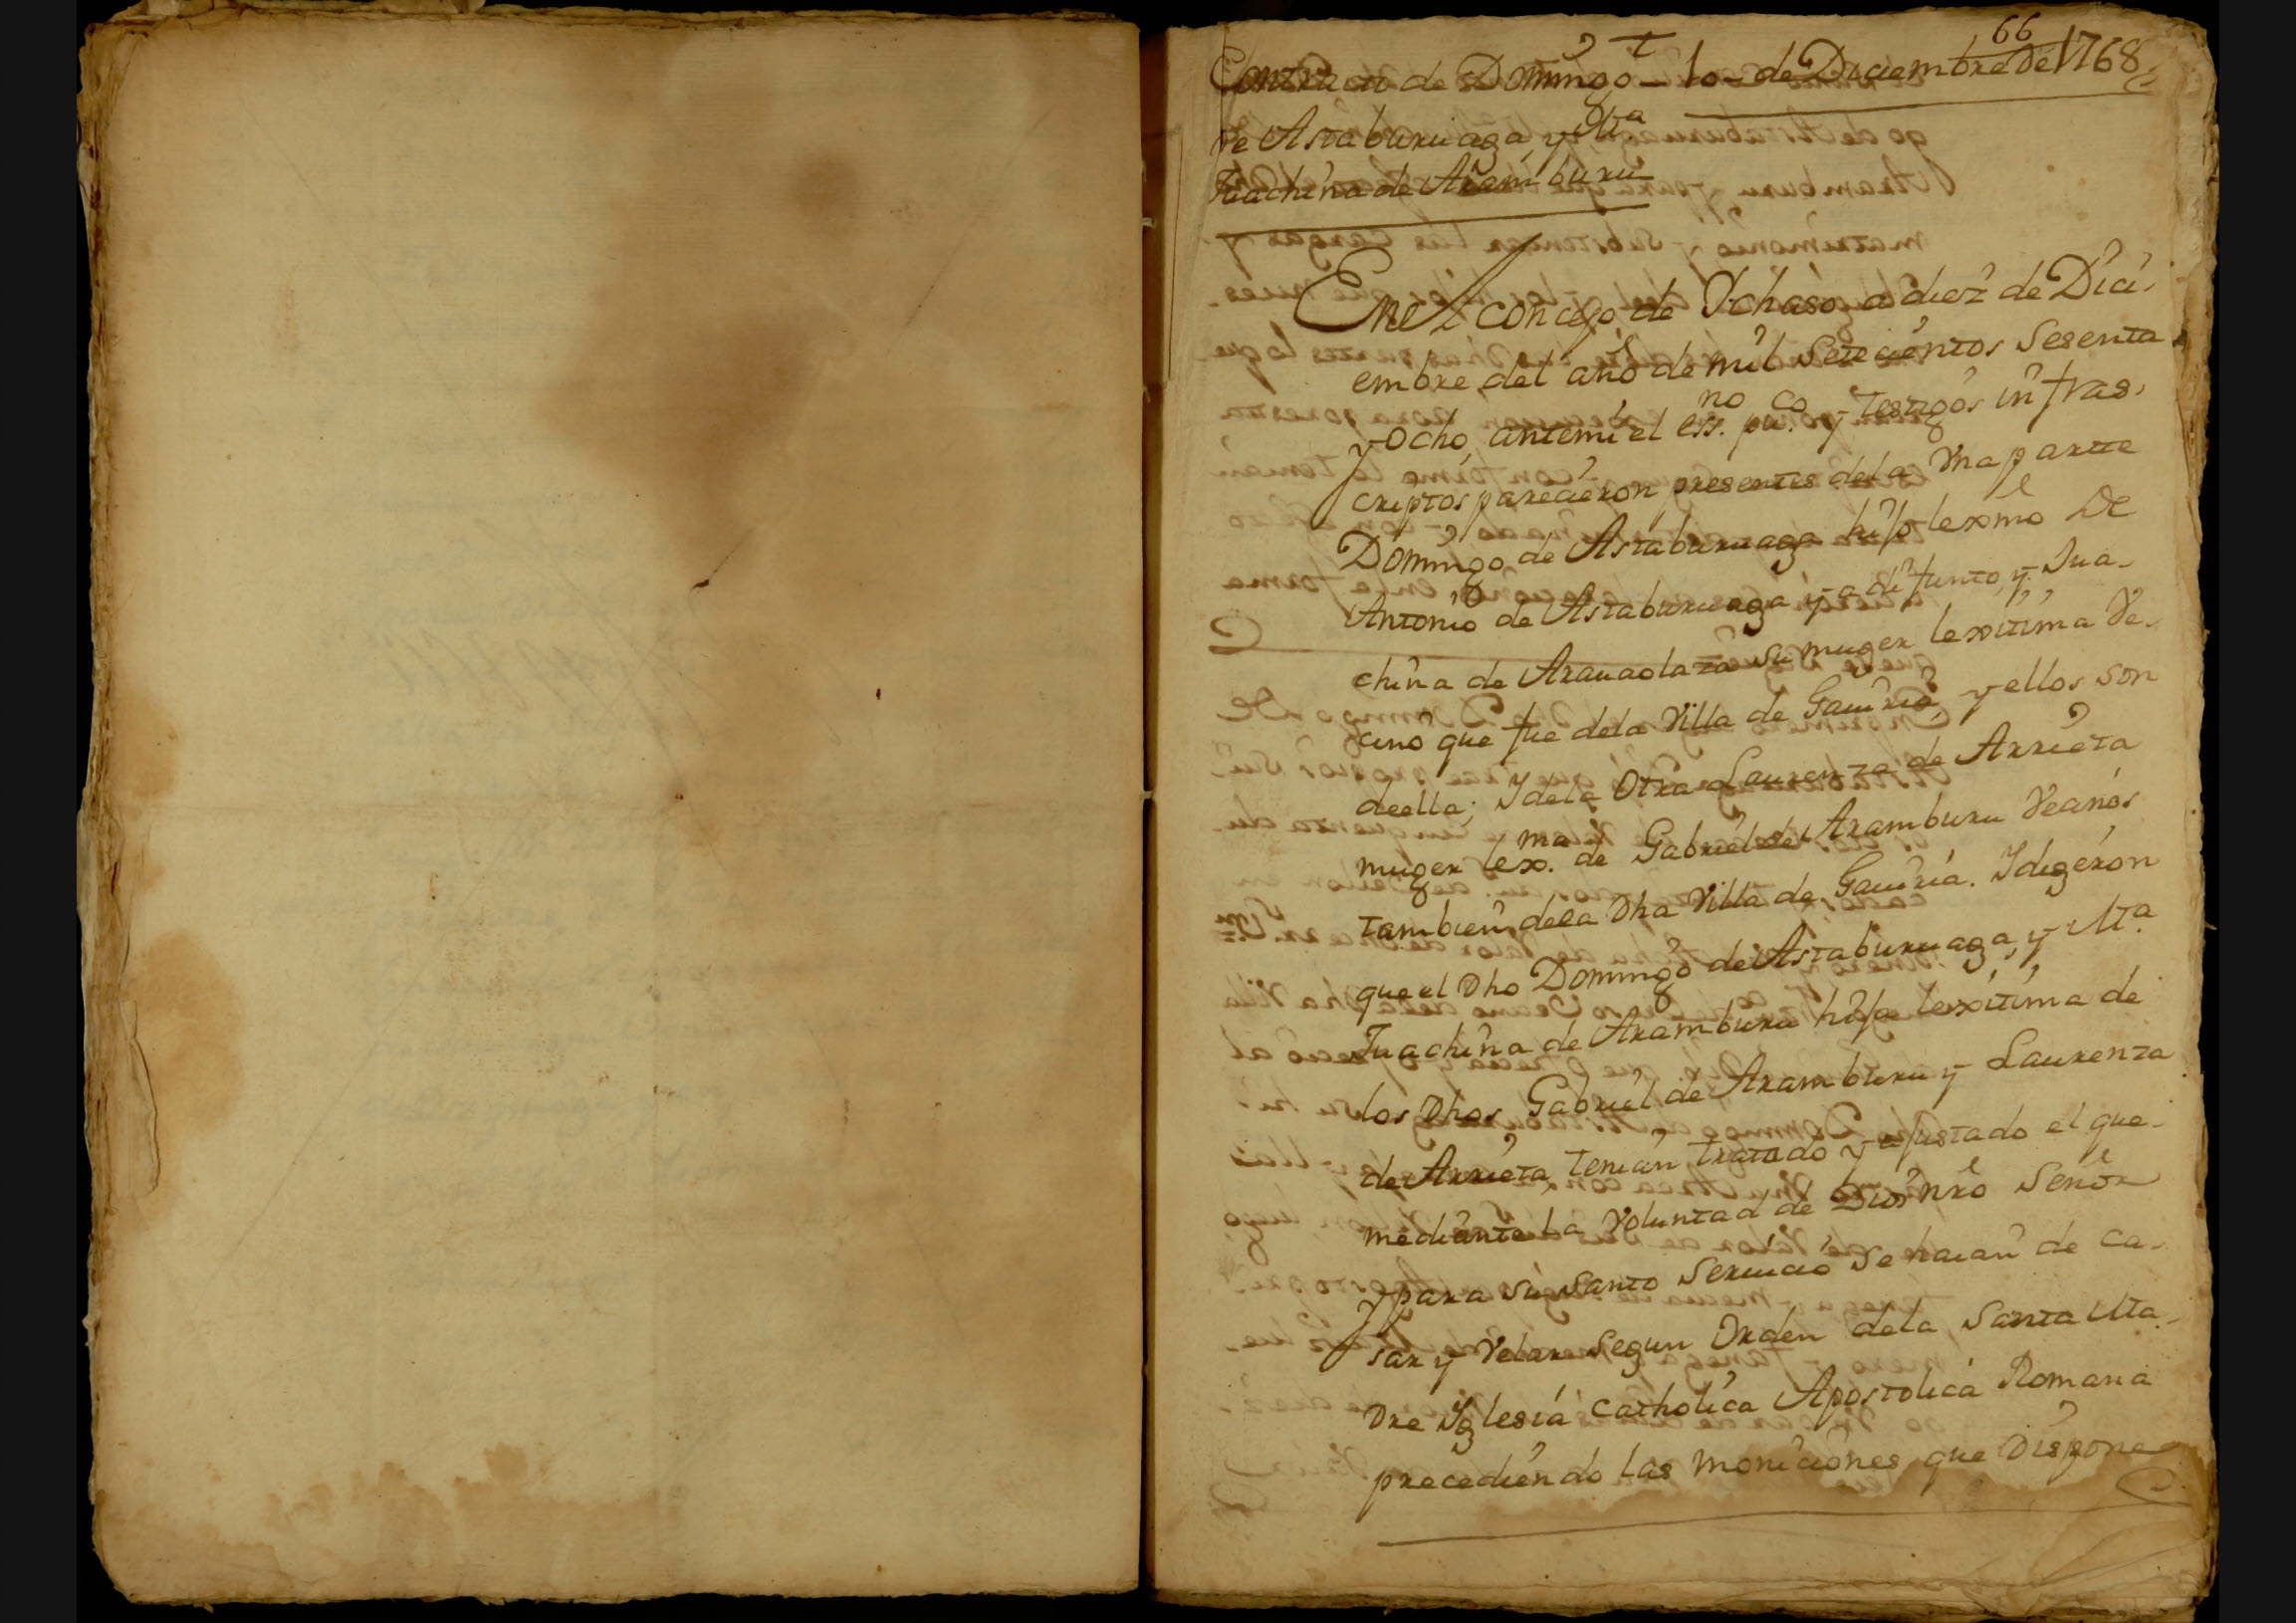 66
Contrato de Domingo - 10 - de Diciembre de 1768
de Astaburuaga, y Ma
Juachina de Aramburu
En el concejo de Ychaso a diez de Dici-
embre, del año de mil Setecientos Sesenta
y ocho, antemi el essno puco y testigos infras-
criptos parecieron presentes dela Vna parte
Domingo de Astaburuaga hijo lexmo De
Antonio de Astaburuaga ya difunto, y Jua-
china de Araucolaza su muger lexitima Ve-
cino que fue dela Villa de Gauiria, y ellos son
de ella; Y dela Otra Laurenza de Arrieta
muger lexma de Gabriel de Aramburu Vecinos
tambien dela Dha Villa de Gauiria. Y digeron
que el Dho Domingo de Astaburuaga, y Ma
Juachina de Aramburu hija lexitima de
los Dhos Gabriel de Aramburu y Laurenza
de Arrieta, tenian tratado y ajustado el que-
mediante la Voluntad de Dios nro Señor
y para su santo Seruicio Se haian de ca-
sar y Velar segun Orden dela Santa Ma-
Dre Yglesia catholica Apostolica Romana
precediendo las moniciones que Dispone